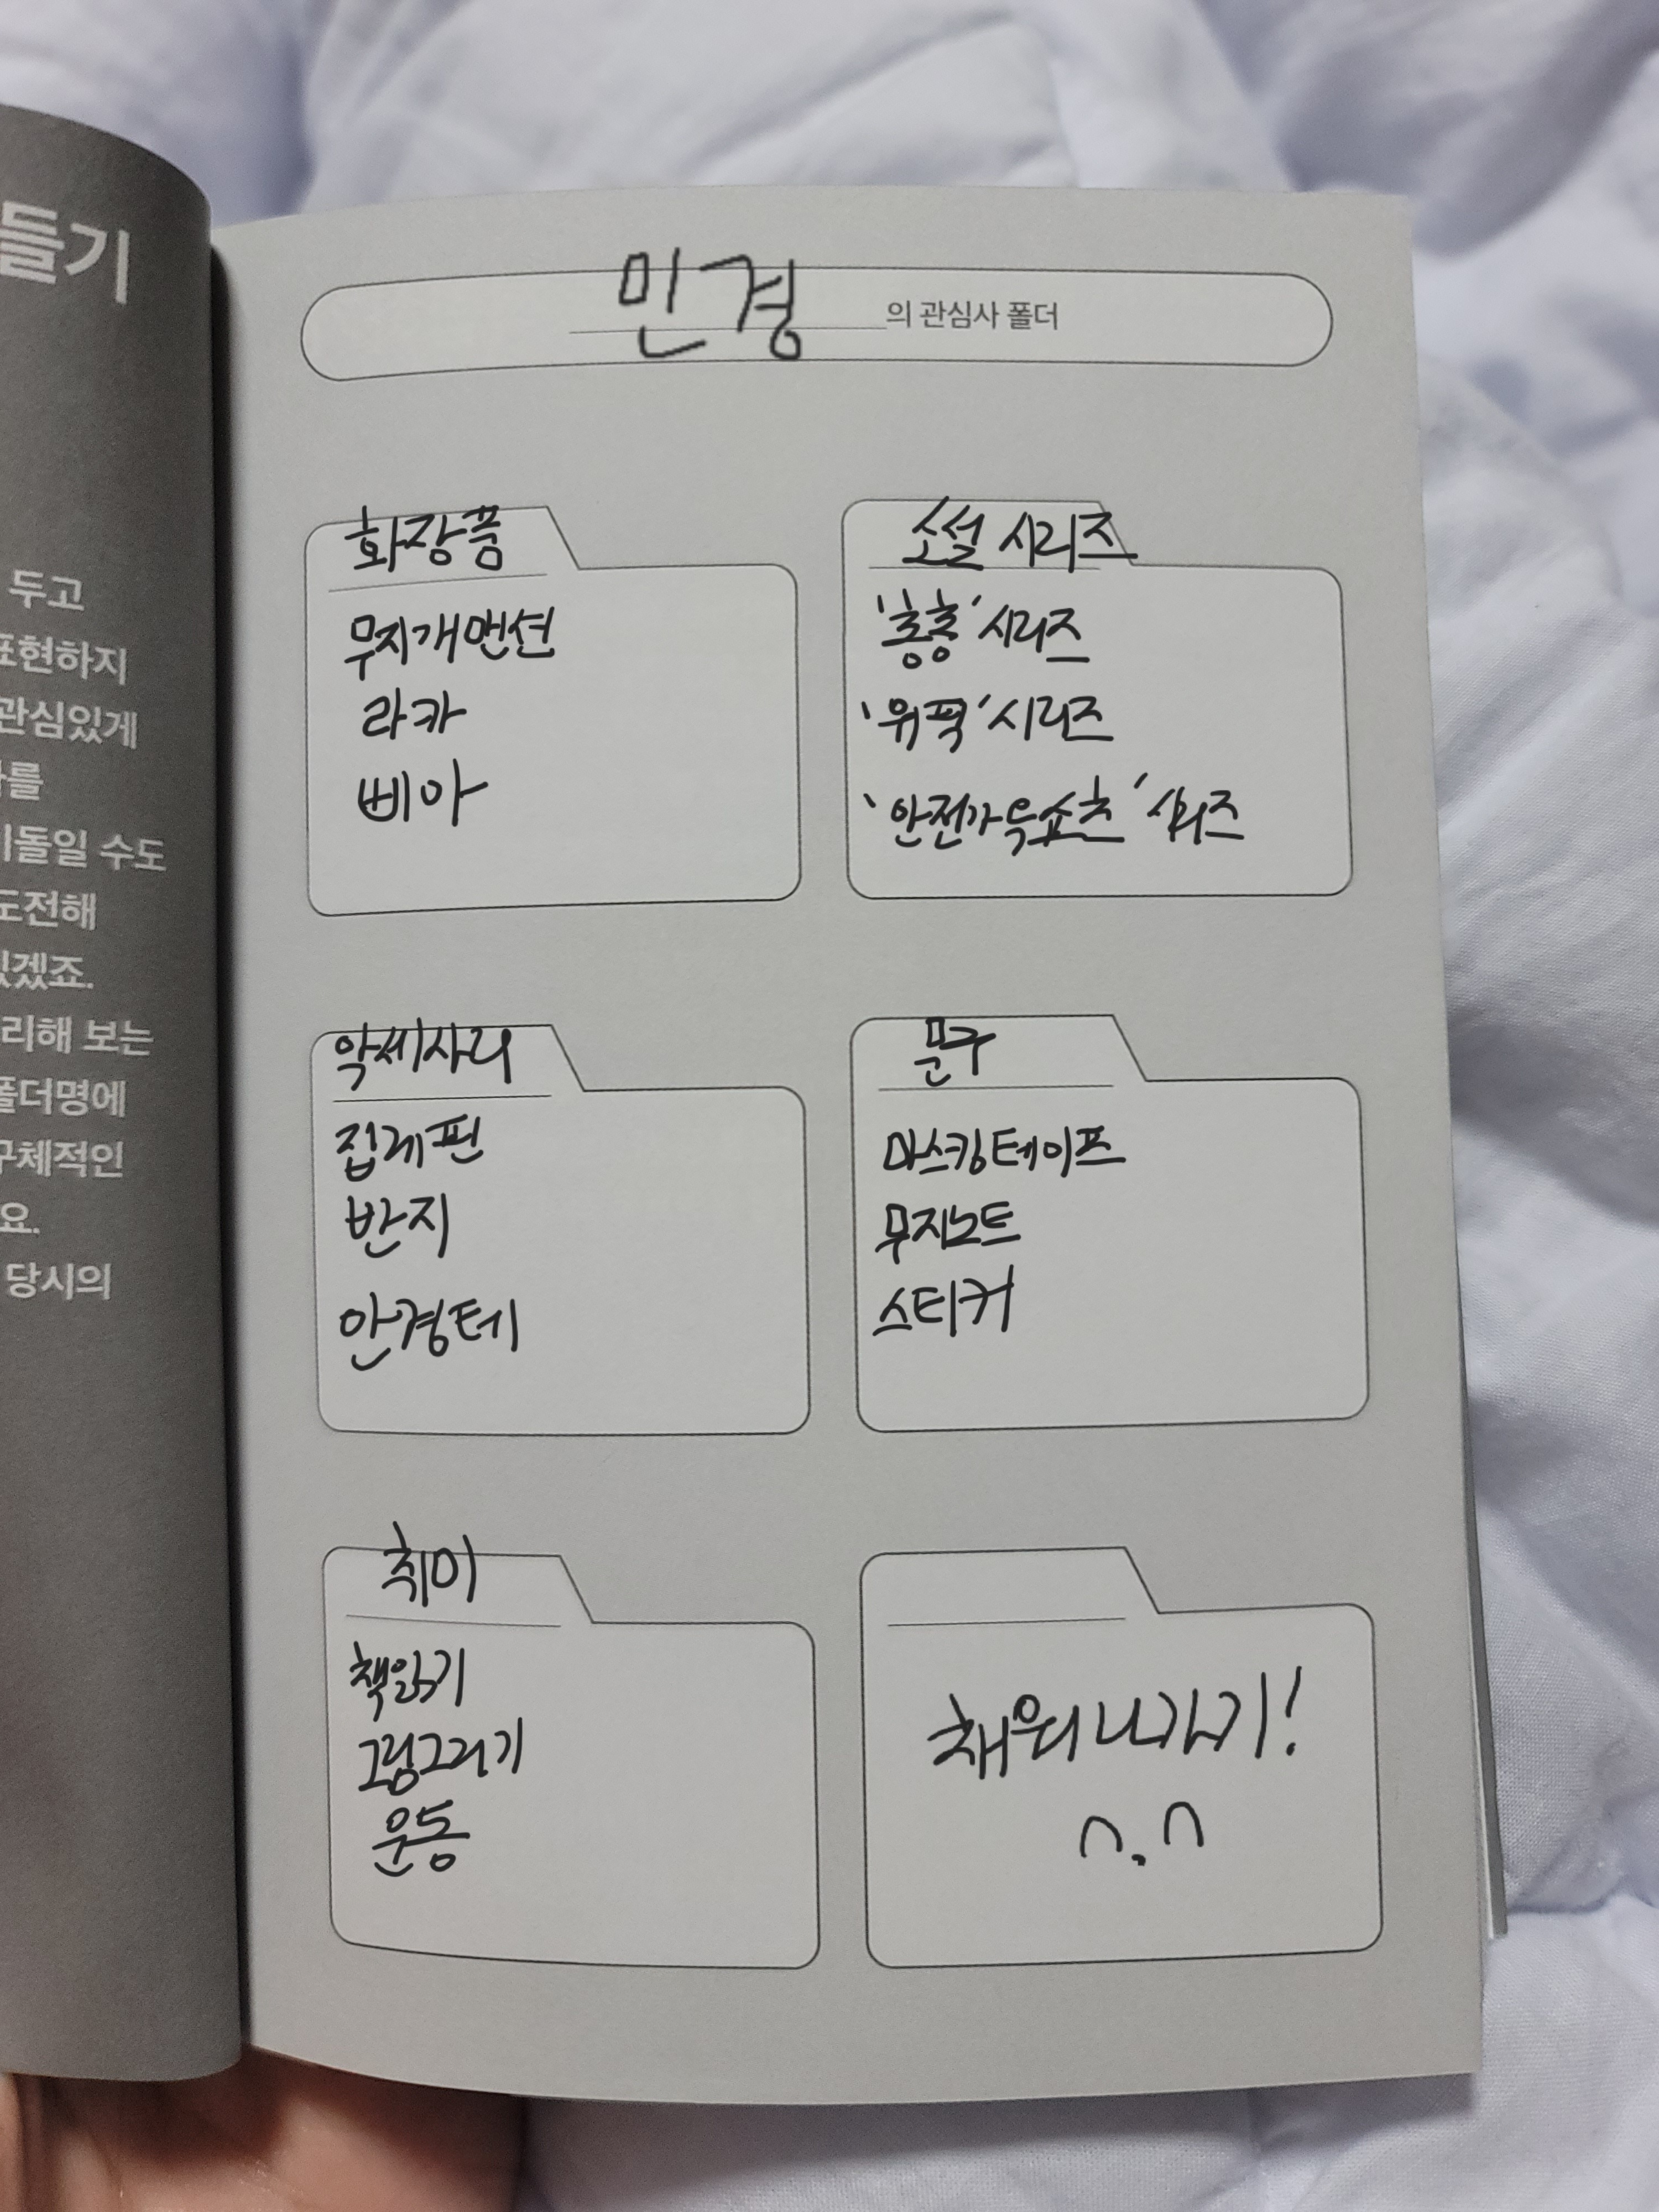 들기
두고
표현하지
관심있게
를
이돌일 수도
도전해
있겠죠.
리해 보는
폴더명에
구체적인
요.
당시의
민경의 관심사 폴더
화장품
무지개맨션
라카
삐아
소설 시리즈
'흥흥' 시리즈
'위픽' 시리즈
'안전가옥쇼츠' 시리즈
악세사리
집게핀
반지
안경테
문구
마스킹테이프
무지노트
스티커
취미
책읽기
그림그리기
운동
채워나가기!
n.n